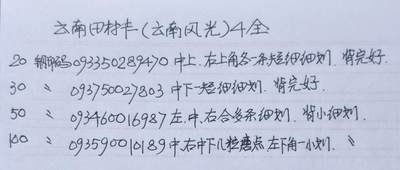 云南田村卡(云南风光)4全
20 钢印码093350289470 中上.右上角各一条短细细划.背完好.
30 〃 093750027803 中下一短细细划.背完好.
50 〃 093460016987 左.中.右合多条细划.背小细划.
100 〃 093590010189 中.右中下几粒磨点.左下角一小划. 〃